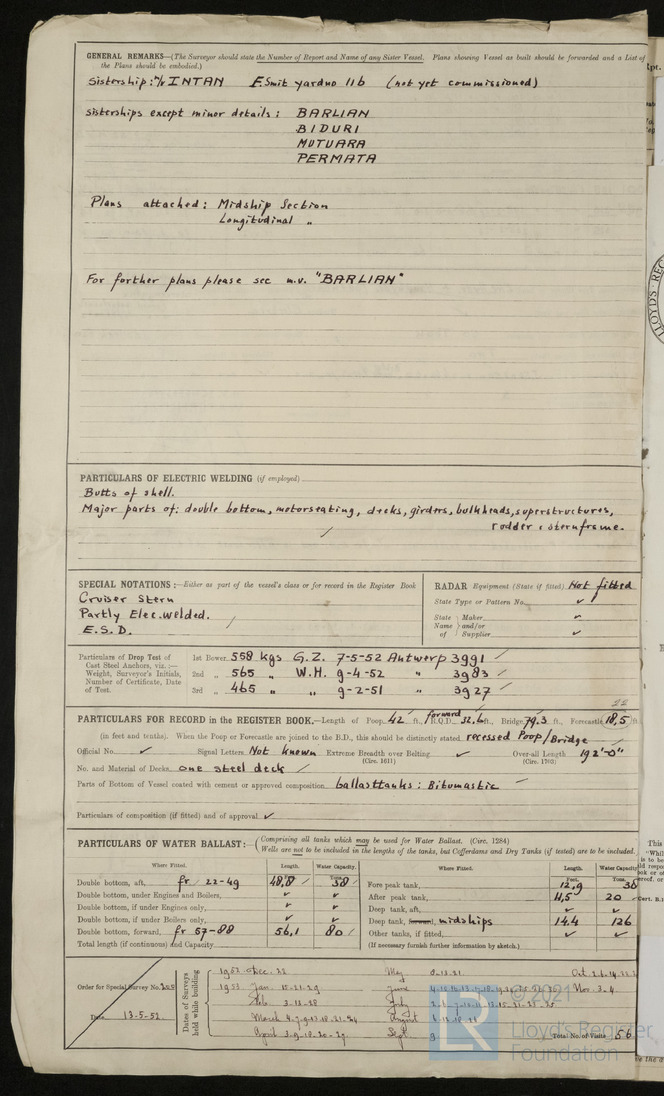 GENERAL REMARKS—(The Surveyor should state the Number of Report and Name of any Sister Vessel. Plans showing Vessel as built should be forwarded and a List of
the Plans should be embodied.)
Sistership: M/V INTAN E.Smit yardno 116 (not yet commissioned)
sisterships except minor details: BARLIAN
BIDURI
MUTUARA
PERMATA
Plans attached: Midship Section
Longitudinal "
For forther plans please see m.v. "BARLIAN"
PARTICULARS OF ELECTRIC WELDING (if employed)
Butts of shell.
Major parts of: double bottom, motorseating, decks, girders, bulkheads, superstructures,
rodder & sternframe.
SPECIAL NOTATIONS:—Either as part of the vessel's class or for record in the Register Book
Cruiser Stern
Partly Elec.welded.
E.S.D.
RADAR Equipment (State if fitted) Not fitted
State Type or Pattern No.
State Maker
Name and/or
of Supplier
Particulars of Drop Test of
Cast Steel Anchors, viz.:—
Weight, Surveyor's Initials,
Number of Certificate, Date
of Test.
1st Bower 558 kgs G.Z. 7-5-52 Antwerp 3991
2nd " 565 " W.H. 9-4-52 " 3983
3rd " 465 " " 9-2-51 " 3927
PARTICULARS FOR RECORD in the REGISTER BOOK.—Length of Poop 42 ft., forward R.Q.D. 32.6 ft., Bridge 79.3 ft., Forecastle 18,5 ft.
(in feet and tenths). When the Poop or Forecastle are joined to the B.D., this should be distinctly stated recessed Poop/Bridge
Official No. Signal Letters Not known Extreme Breadth over Belting Over-all Length 192'-0"
(Circ. 1611) (Circ. 1703)
No. and Material of Decks one steel deck
Parts of Bottom of Vessel coated with cement or approved composition ballasttanks: Bitumastic
Particulars of composition (if fitted) and of approval
PARTICULARS OF WATER BALLAST:— (Comprising all tanks which may be used for Water Ballast. (Circ. 1284)
Wells are not to be included in the lengths of the tanks, but Cofferdams and Dry Tanks (if tested) are to be included.
Where Fitted. Length. Water Capacity.
Double bottom, aft, fr 22-49 48,8 38
Double bottom, under Engines and Boilers,
Double bottom, if under Engines only,
Double bottom, if under Boilers only,
Double bottom, forward, fr 57-88 56,1 80
Total length (if continuous) and Capacity
Where Fitted. Length. Water Capacity
Feet. Tons.
Fore peak tank, 12,9 30
After peak tank, 11,5 20
Deep tank, aft,
Deep tank, forward, midships 14.4 126
Other tanks, if fitted,
(If necessary furnish further information by sketch.)
Order for Special Survey No.
Date 13-5-52
Dates of Surveys
held while building
1952 Dec. 22
1953 Jan. 15-21-29
Feb 3-12-28
March 4-7-9-17-18-21-24
April 3-9-18-20-27
May
June
July
August
Sept. 9
Oct
Nov. 3-4
Total No. of Visits 56
© 2021
LR
Lloyd's Register
Foundation
LLOYD'S REG
This